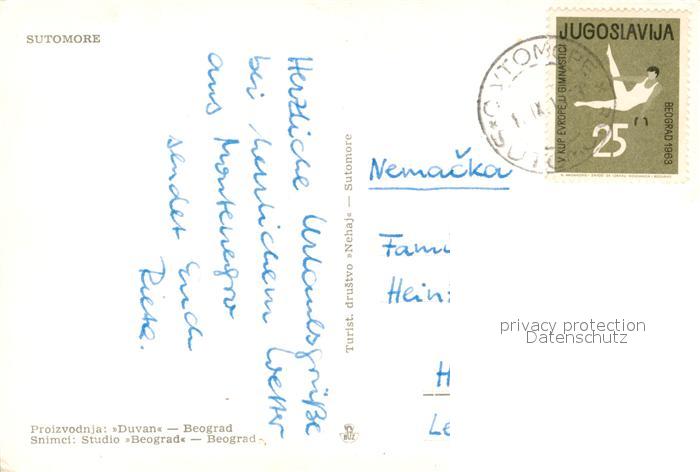 SUTOMORE
Herzliche Urlaubsgrüße
bei herrlichem Wetter
aus Montenegro
sendet Euch
Turist. društvo »Nehaj« — Sutomore
JUGOSLAVIJA
V KUP EVROPE U GIMNASTICI
BEOGRAD 1963
25
Nemačka
Fami
Hein
H
Le
privacy protection
Datenschutz
Proizvodnja: »Duvan« — Beograd
Snimci: Studio »Beograd« — Beograd